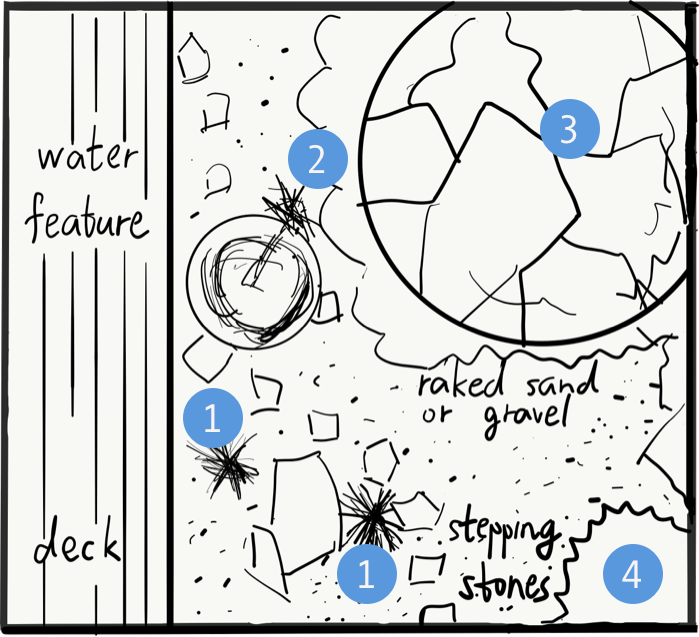 water
feature
2
3
1
raked sand
or gravel
stepping
stones
deck
1
4